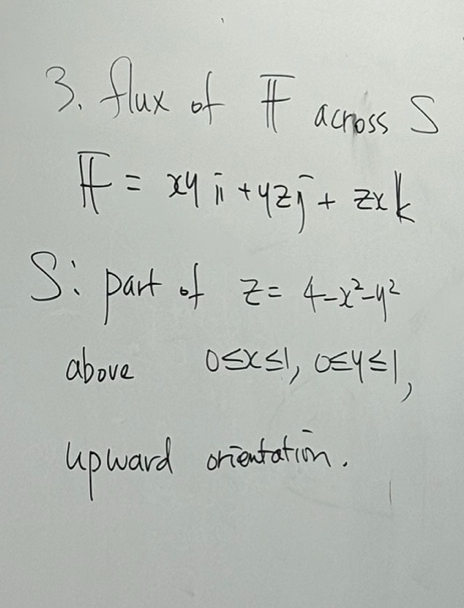 3. flux of F across S
F = xy i + yz j + zx k
S: part of z = 4-x²-y²
above 0≤x≤1, 0≤y≤1,
upward orientation.